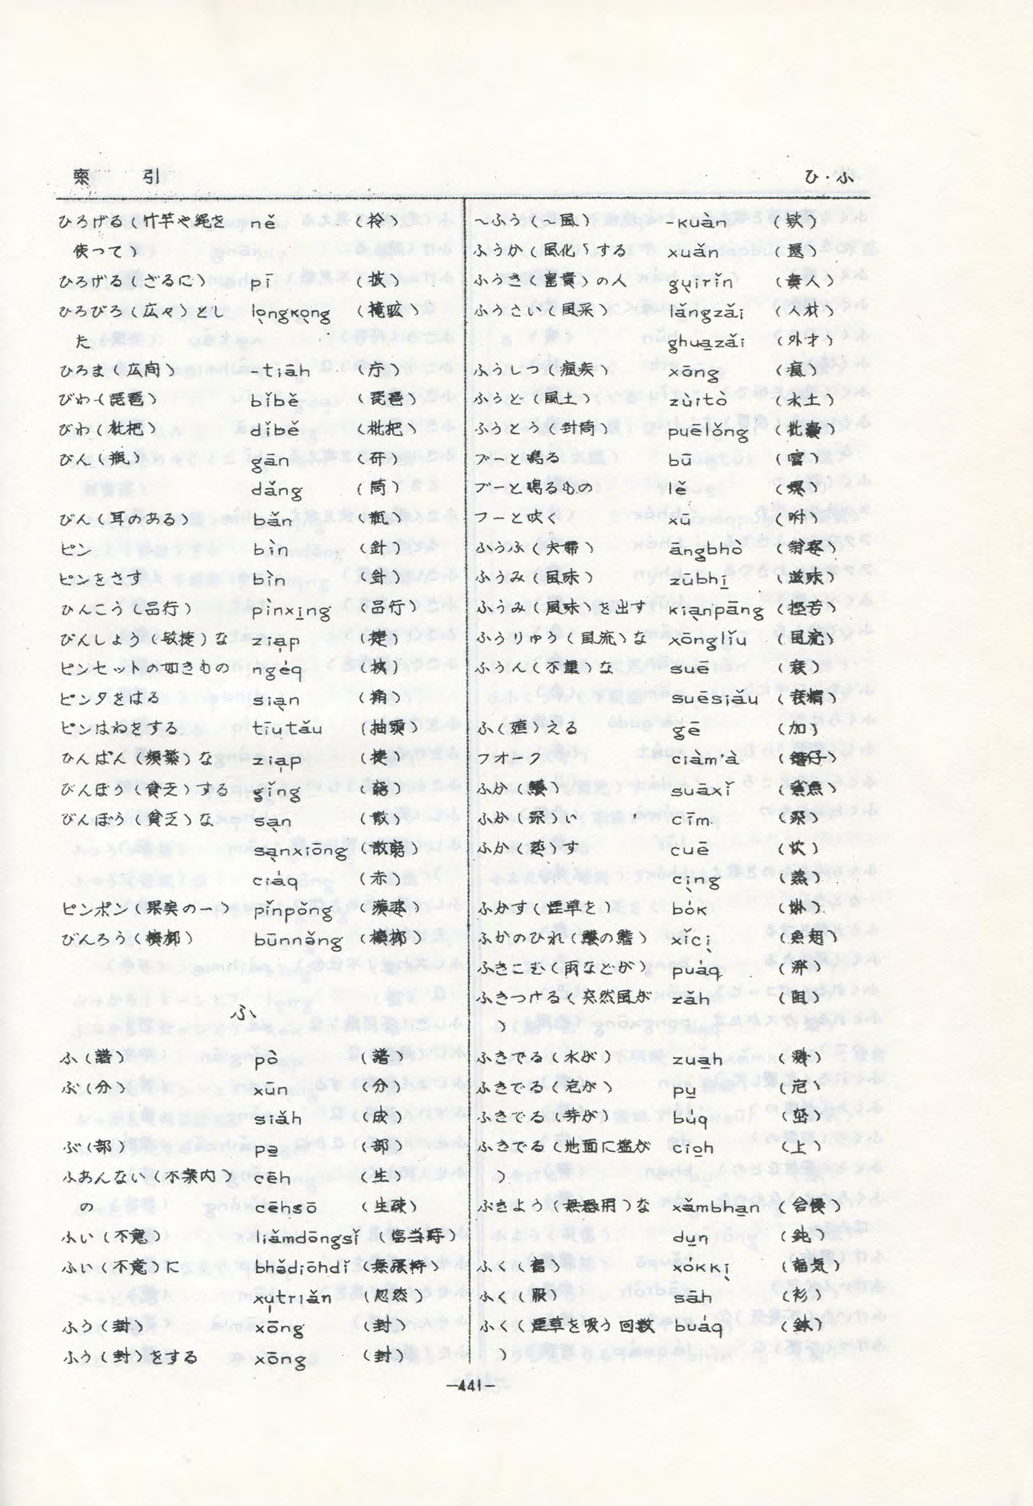 索 引
ひ・ふ
ひろげる(竹竿や縄を ně
使って)
ひろげる(ざるに) pī (披)
ひろびろ(広々)とし
た
ひろま(広間) -tiāh (庁)
びわ(琵琶) bǐbě (琵琶)
びわ(枇杷) bǐbě (枇杷)
びん(瓶) gān (矸)
dǎng (筒)
びん(耳のある) bǎn (瓶)
ピン bìn (針)
ピンをさす bìn (針)
ひんこう(品行) pìnxi̱ng (品行)
びんしょう(敏捷)な zia̍p (捷)
ピンセットの如きもの
ピンタをはる
ピンはねをする tīutǎu (抽頭)
ひんぱん(頻繁)な zia̍p (捷)
びんぼう(貧乏)する gǐng
びんぼう(貧乏)な sa̖n (散)
sa̖nxiōng
ciáq (赤)
ピンポン(果実の一) pǐnpǒng
びんろう(檳榔) būnnǎng (檳榔)
ふ
ふ(譜) pò (譜)
ぶ(分) xūn (分)
siǎh (成)
ぶ(部) pə̱ (部)
ふあんない(不案内) cēh (生)
の cēhsō (生疎)
ふい(不意) liǎmdōngsǐ (臨当時)
ふい(不意)に bhǒdiōhdǐ
xu̍triǎn (忽然)
ふう(封) xōng (封)
ふう(封)をする xōng (封)
〜ふう(〜風) -kuàn (款)
ふうか(風化)する xuǎn (還)
ふうき(富貴)の人
ふうさい(風采) lǎngzǎi (人材)
ghua̱zǎi (外才)
ふうしつ(瘋疾) xōng (瘋)
ふうど(風土) zùitò (水土)
ふうとう(封筒) puēlǒng
ブーと鳴る bū
ブーと鳴るもの lě (螺)
フーと吹く xū
ふうふ(夫婦) āngbhò (翁婆)
ふうみ(風味) zūbhi̱ (滋味)
ふうみ(風味)を出す
ふうりゅう(風流)な xōnglǐu (風流)
ふうん(不運)な suē (衰)
suēsiǎu
ふ(殖)える gē (加)
フォーク ciàm'à
ふか(鱶) suāxǐ
ふか(深)い cīm (深)
ふか(蒸)す cuē (炊)
ci̖ng (蒸)
ふかす(煙草を) bo̍k
ふかのひれ(鱶の鰭) xǐci̖ (魚翅)
ふきこむ(雨などが) puáq
ふきつける(突然風が zǎh
)
ふきでる(水が) zua̱h (濺)
ふきでる(泡が)
ふきでる(芽が) búq
ふきでる(地面に塩が ci̱oh (上)
)
ぶきよう(無器用)な xǎmbha̱n (含慢)
du̱n (鈍)
ふく(福) xókki̖ (福気)
ふく(服) sāh (衫)
ふく(煙草を吸う回数 buáq
)
—441—